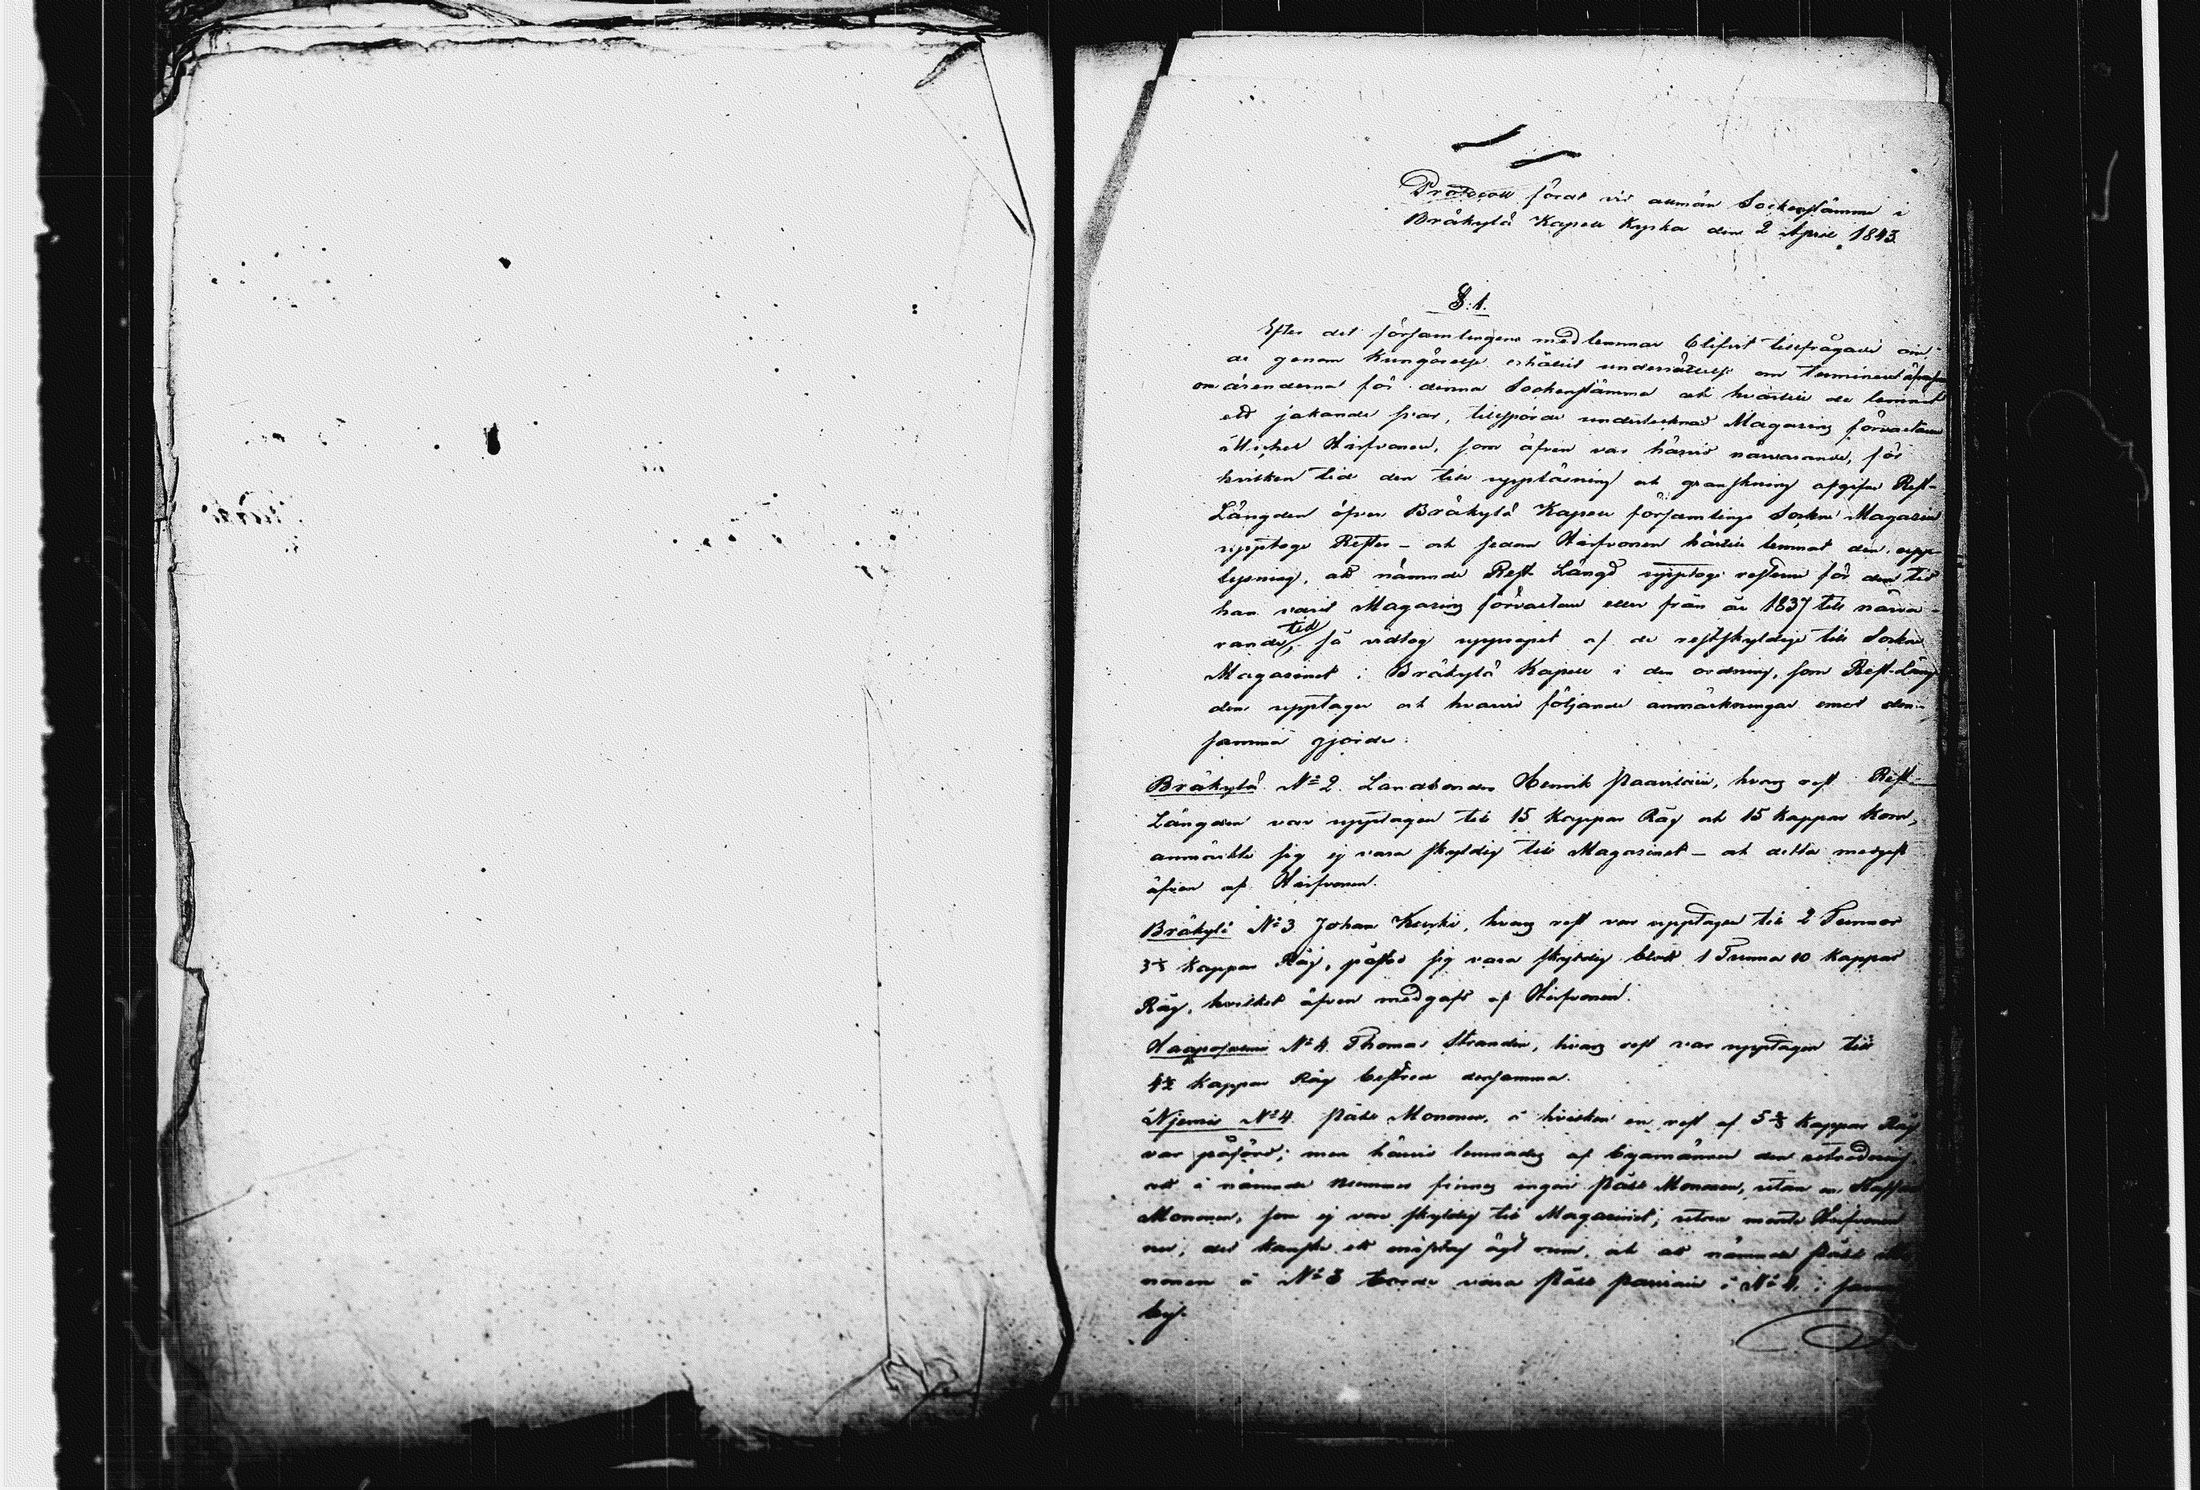 Protocoll fördt vid allmän Sockenstämma i
Bräkylä Kapell Kyrka den 2 April 1843.
§. 1.
Efter det församlingens medlemmar blifvit tillfrågade om
de genom Kungörelse erhållit underrättelse om terminen
om ärenderna för denna Sockenstämma och härtill de lemnat
ett jakande svar, tillsporde undertecknad Magasins förvaltaren
Michel Hirfvonen, som äfven var härvid närvarande, för
hvilken tid den till uppläsning och granskning afgifne Rest-
Längden öfver Bräkylä Kapell församlings Sockne Magasin
upptoge Rester – och sedan Hirfvonen härtill lemnat den upp-
lysning, att nämnde Rest Längd upptoge resterne för den tid
han varit Magasins förvaltare eller från år 1837 till närva-
rande tid, så vidtog uppropet af de restskyldige till Sockne
Magasinet i Bräkylä Kapell i den ordning, som Rest-Läng
den upptager och hvarvid följande anmärkningar emot den-
samma gjorde:
Bräkylä N:o 2. Landbonden Henrik Paavilain, hvars rest i Rest-
Längden var upptagen till 15 Kappar Råg och 15 Kappar Korn,
anmärkte sig ej vara skyldig till Magasinet – och detta medgafs
äfven af Hirfvonen.
Bräkylä N:o 3. Johan Kurki, hvars rest var upptagen till 2 Tunnor
Kappar Råg, påstod sig vara skyldig blott 1 Tunna 10 Kappar
Råg, hvilket äfven medgafs af Hirfvonen.
N:o 4. Thomas Strandén, hvars rest var upptagen till
4½ Kappar Råg bestred densamma.
Njemis N:o 4. Påhl Mononen, å hvilken en rest af 5⅔ Kappar Råg
var påförd; men härvid lemnades af byamännen den utredning,
att å nämnde Nummer finnes ingen Påhl Mononen, utan en Staffan
Mononen, som ej vore skyldig till Magasinet; utan mente Hirfvonen
nu, det kanske ett misstag ägt rum, och att nämnde Påhl Mo-
nonen å N:o 3 torde vara Påhl å N:o 4 i samma
by.